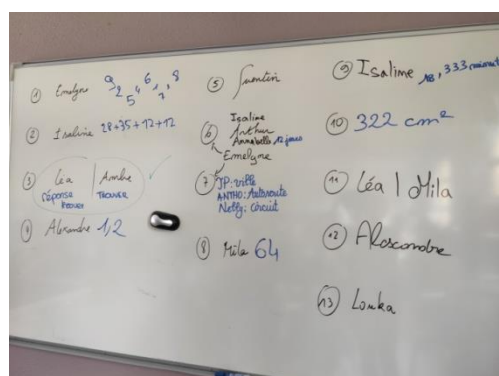 ① Emelyne 9 2 5 4 6 1 7 8
② Isaline 28+35+12+12
③ Léa | Ambre
réponse TROUVER
④ Alexandre 1/2
⑤ Quentin
⑥ Isaline
Arthur
Annabelle 12 jours
Emelyne
⑦ JP: ville
ANTHO: Autoroute
Nelly: Circuit
⑧ Mila 64
⑨ Isaline 18,333 minutes
⑩ 322 cm²
⑪ Léa | Mila
⑫ Alexandre
⑬ Louka